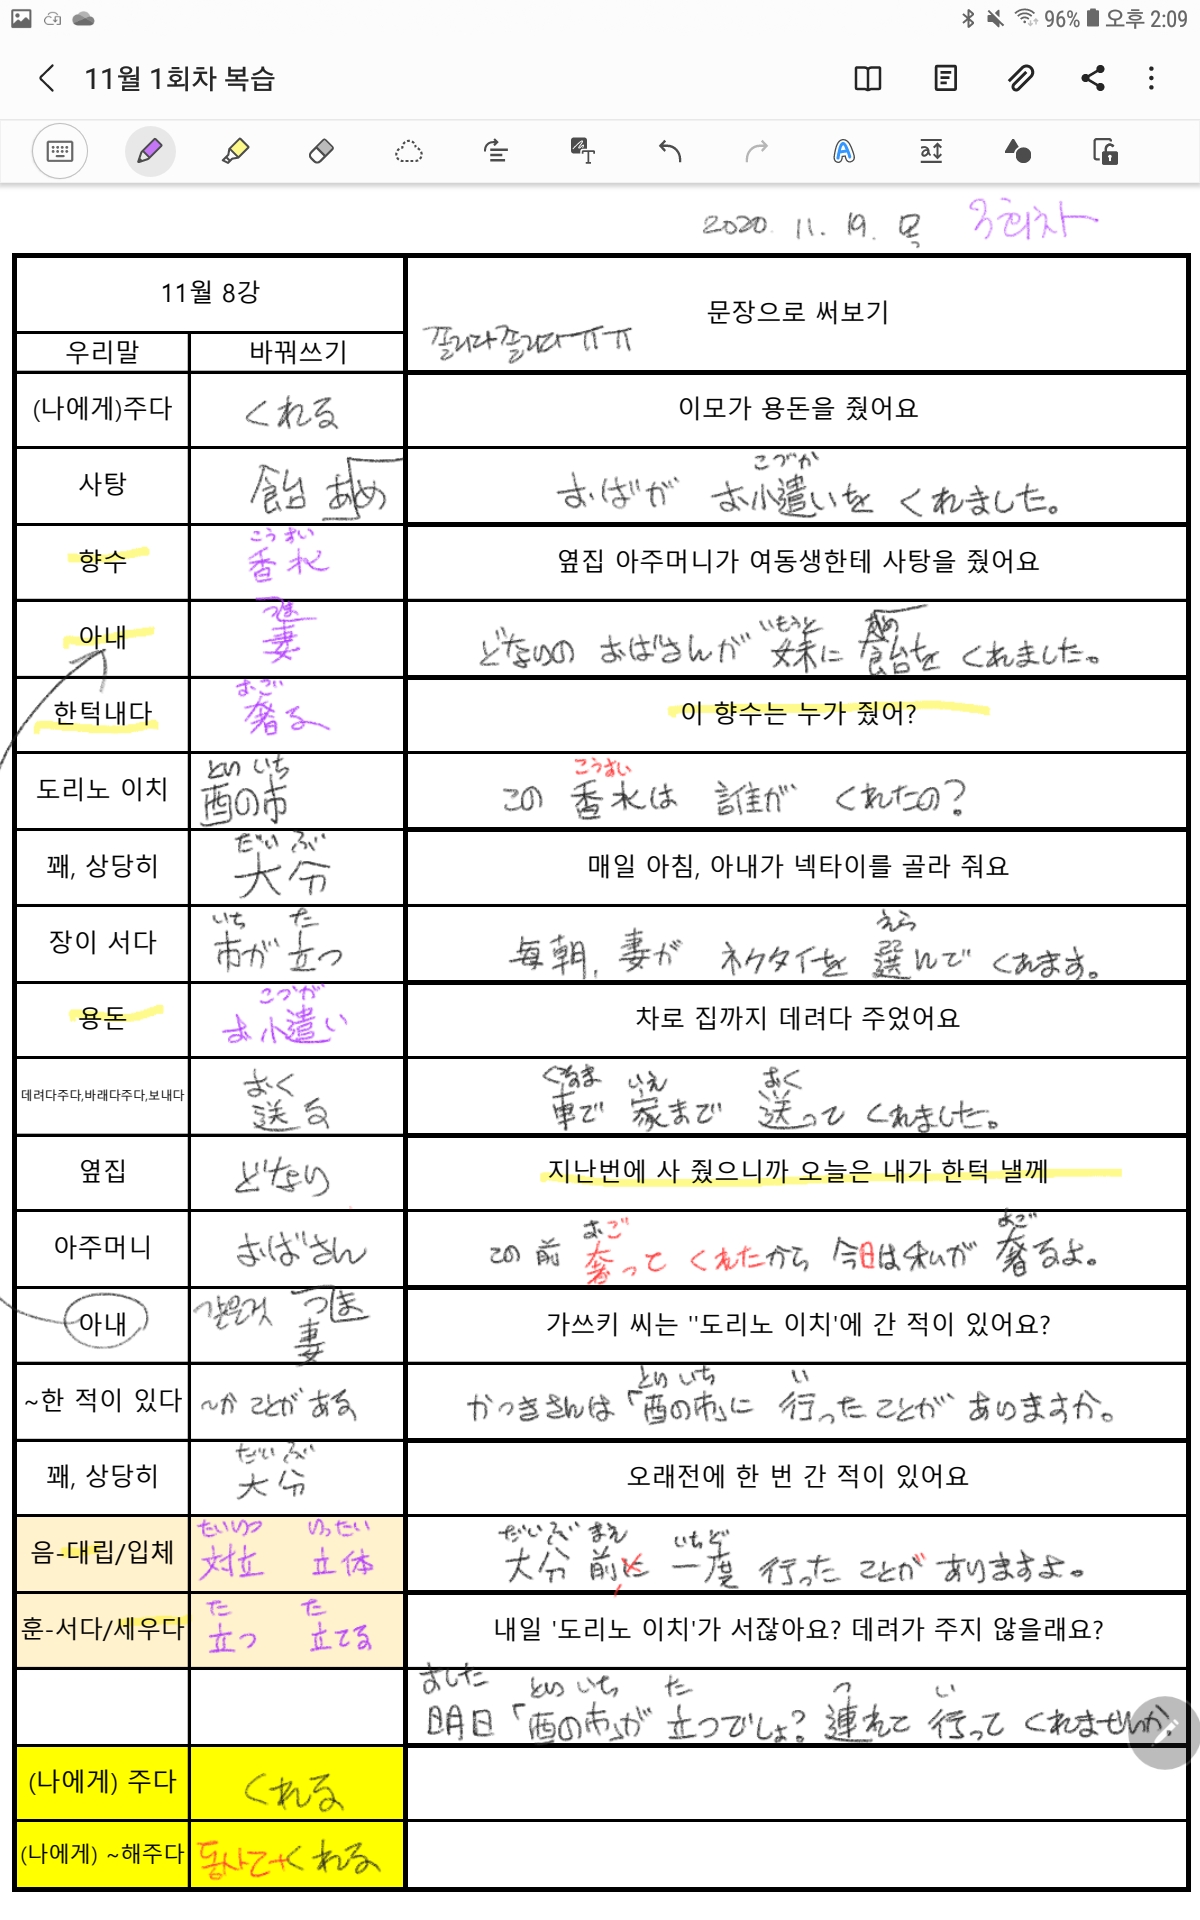 96% 오후 2:09
11월 1회차 복습
2020. 11. 19. 목 3회차
11월 8강
문장으로 써보기
졸리다졸리다ㅠㅠ
우리말 바꿔쓰기
(나에게)주다 くれる 이모가 용돈을 줬어요
こづか
사탕 飴 あめ おばが お小遣いを くれました。
こうすい
향수 香水 옆집 아주머니가 여동생한테 사탕을 줬어요
つま いもうと あめ
아내 妻 どないの おばさんが 妹に 飴を くれました。
おご
한턱내다 奢る 이 향수는 누가 줬어?
とり いち こうすい
도리노 이치 酉の市 この 香水は 誰が くれたの?
だい ぶ
꽤, 상당히 大分 매일 아침, 아내가 넥타이를 골라 줘요
いち た えら
장이 서다 市が 立つ 毎朝, 妻が ネクタイを 選んで くれます。
こづが
용돈 お小遣い 차로 집까지 데려다 주었어요
おく くるま いえ おく
데려다주다,바래다주다,보내다 送る 車で 家まで 送って くれました。
옆집 どなり 지난번에 사 줬으니까 오늘은 내가 한턱 낼께
おご おご
아주머니 おばさん この 前 奢って くれたから 今日は 私が 奢るよ。
아내 같은것 つま 妻 가쓰키 씨는 "도리노 이치'에 간 적이 있어요?
とり いち い
~한 적이 있다 ~か ことが ある かつきさんは「酉の市」に 行ったことが ありますか。
だい ぶ
꽤, 상당히 大分 오래전에 한 번 간 적이 있어요
たいりつ りったい だい ぶ まえ いちど
음-대립/입체 対立 立体 大分 前に 一度 行った ことが ありますよ。
た た
훈-서다/세우다 立つ 立てる 내일 '도리노 이치'가 서잖아요? 데려가 주지 않을래요?
ました とり いち た つ い
明日「酉の市」が 立つでしょ? 連れて 行って くれませんか?
(나에게) 주다 くれる
(나에게) ~해주다 동사て+くれる